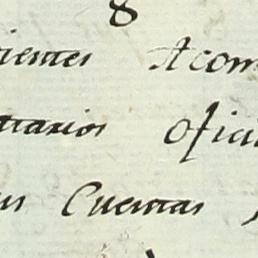 8
ientes Acom
ttarios ofici
us Cuentas